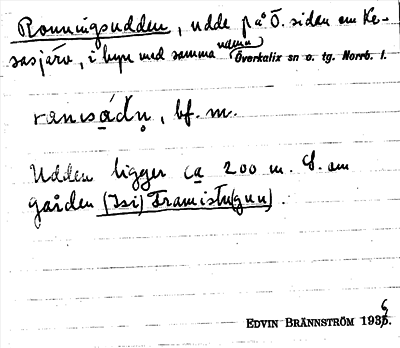 Ronningsudden, udde på Ö. sidan om Ke-
sasjärv, i byn med samma namn Överkalix sn o. tg. Norrb. l.
rancsádn̥, bf. m.
Udden ligger ca 200 m. S. om
gården (Isi) Framistu(gun).
EDVIN BRÄNNSTRÖM 1936.